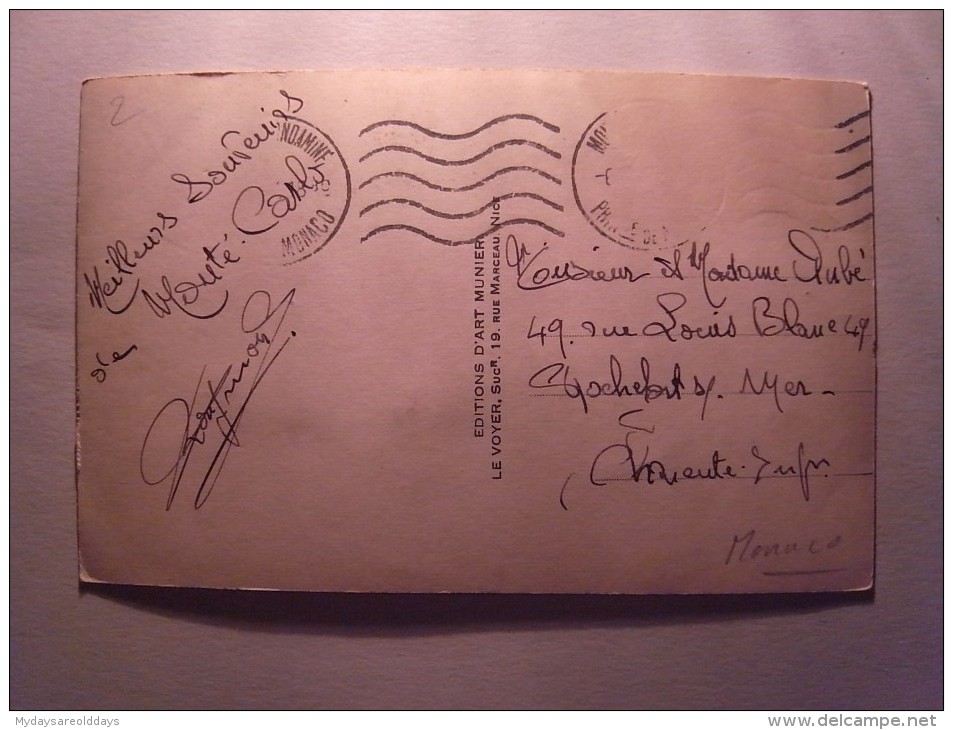 2
Meilleurs Souvenirs
de Monté-Carlo
NDAMINE
MONACO
MO
PRIN E DE
EDITIONS D'ART MUNIER
LE VOYER, SUCR. 19. RUE MARCEAU, NICE
Monsieur et Madame Aubé
49. rue Louis Blanc 49
Rochefort s/ Mer-
Charente-Infr.
Monaco
Mydaysareolddays
www.delcampe.net